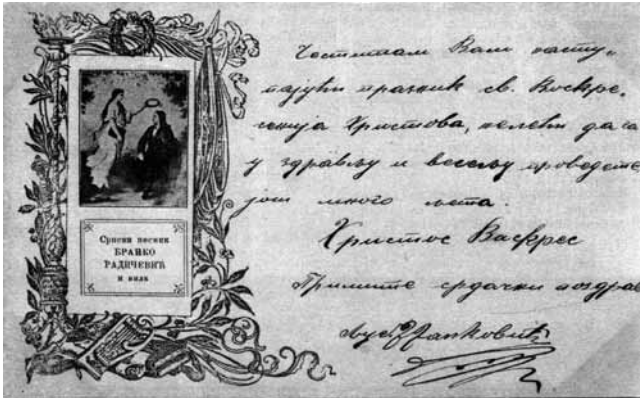 Српски песник
БРАНКО
РАДИЧЕВИЋ
и вила
Честитам Вам насту-
пајући празник св. Воскре-
сенија Христова, желећи да га
у здрављу и весељу проведете
још много лета.
Христос Васкрес
Примите срдачни поздрав